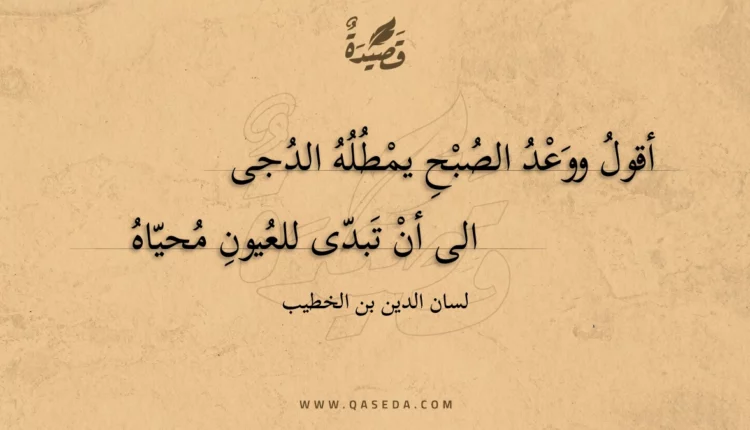 قَصِيْدَةٌ
أقولُ ووَعْدُ الصُبْحِ يمْطُلُهُ الدُجى
الى أنْ تَبدّى للعُيونِ مُحيّاهُ
لسان الدين بن الخطيب
WWW.QASEDA.COM